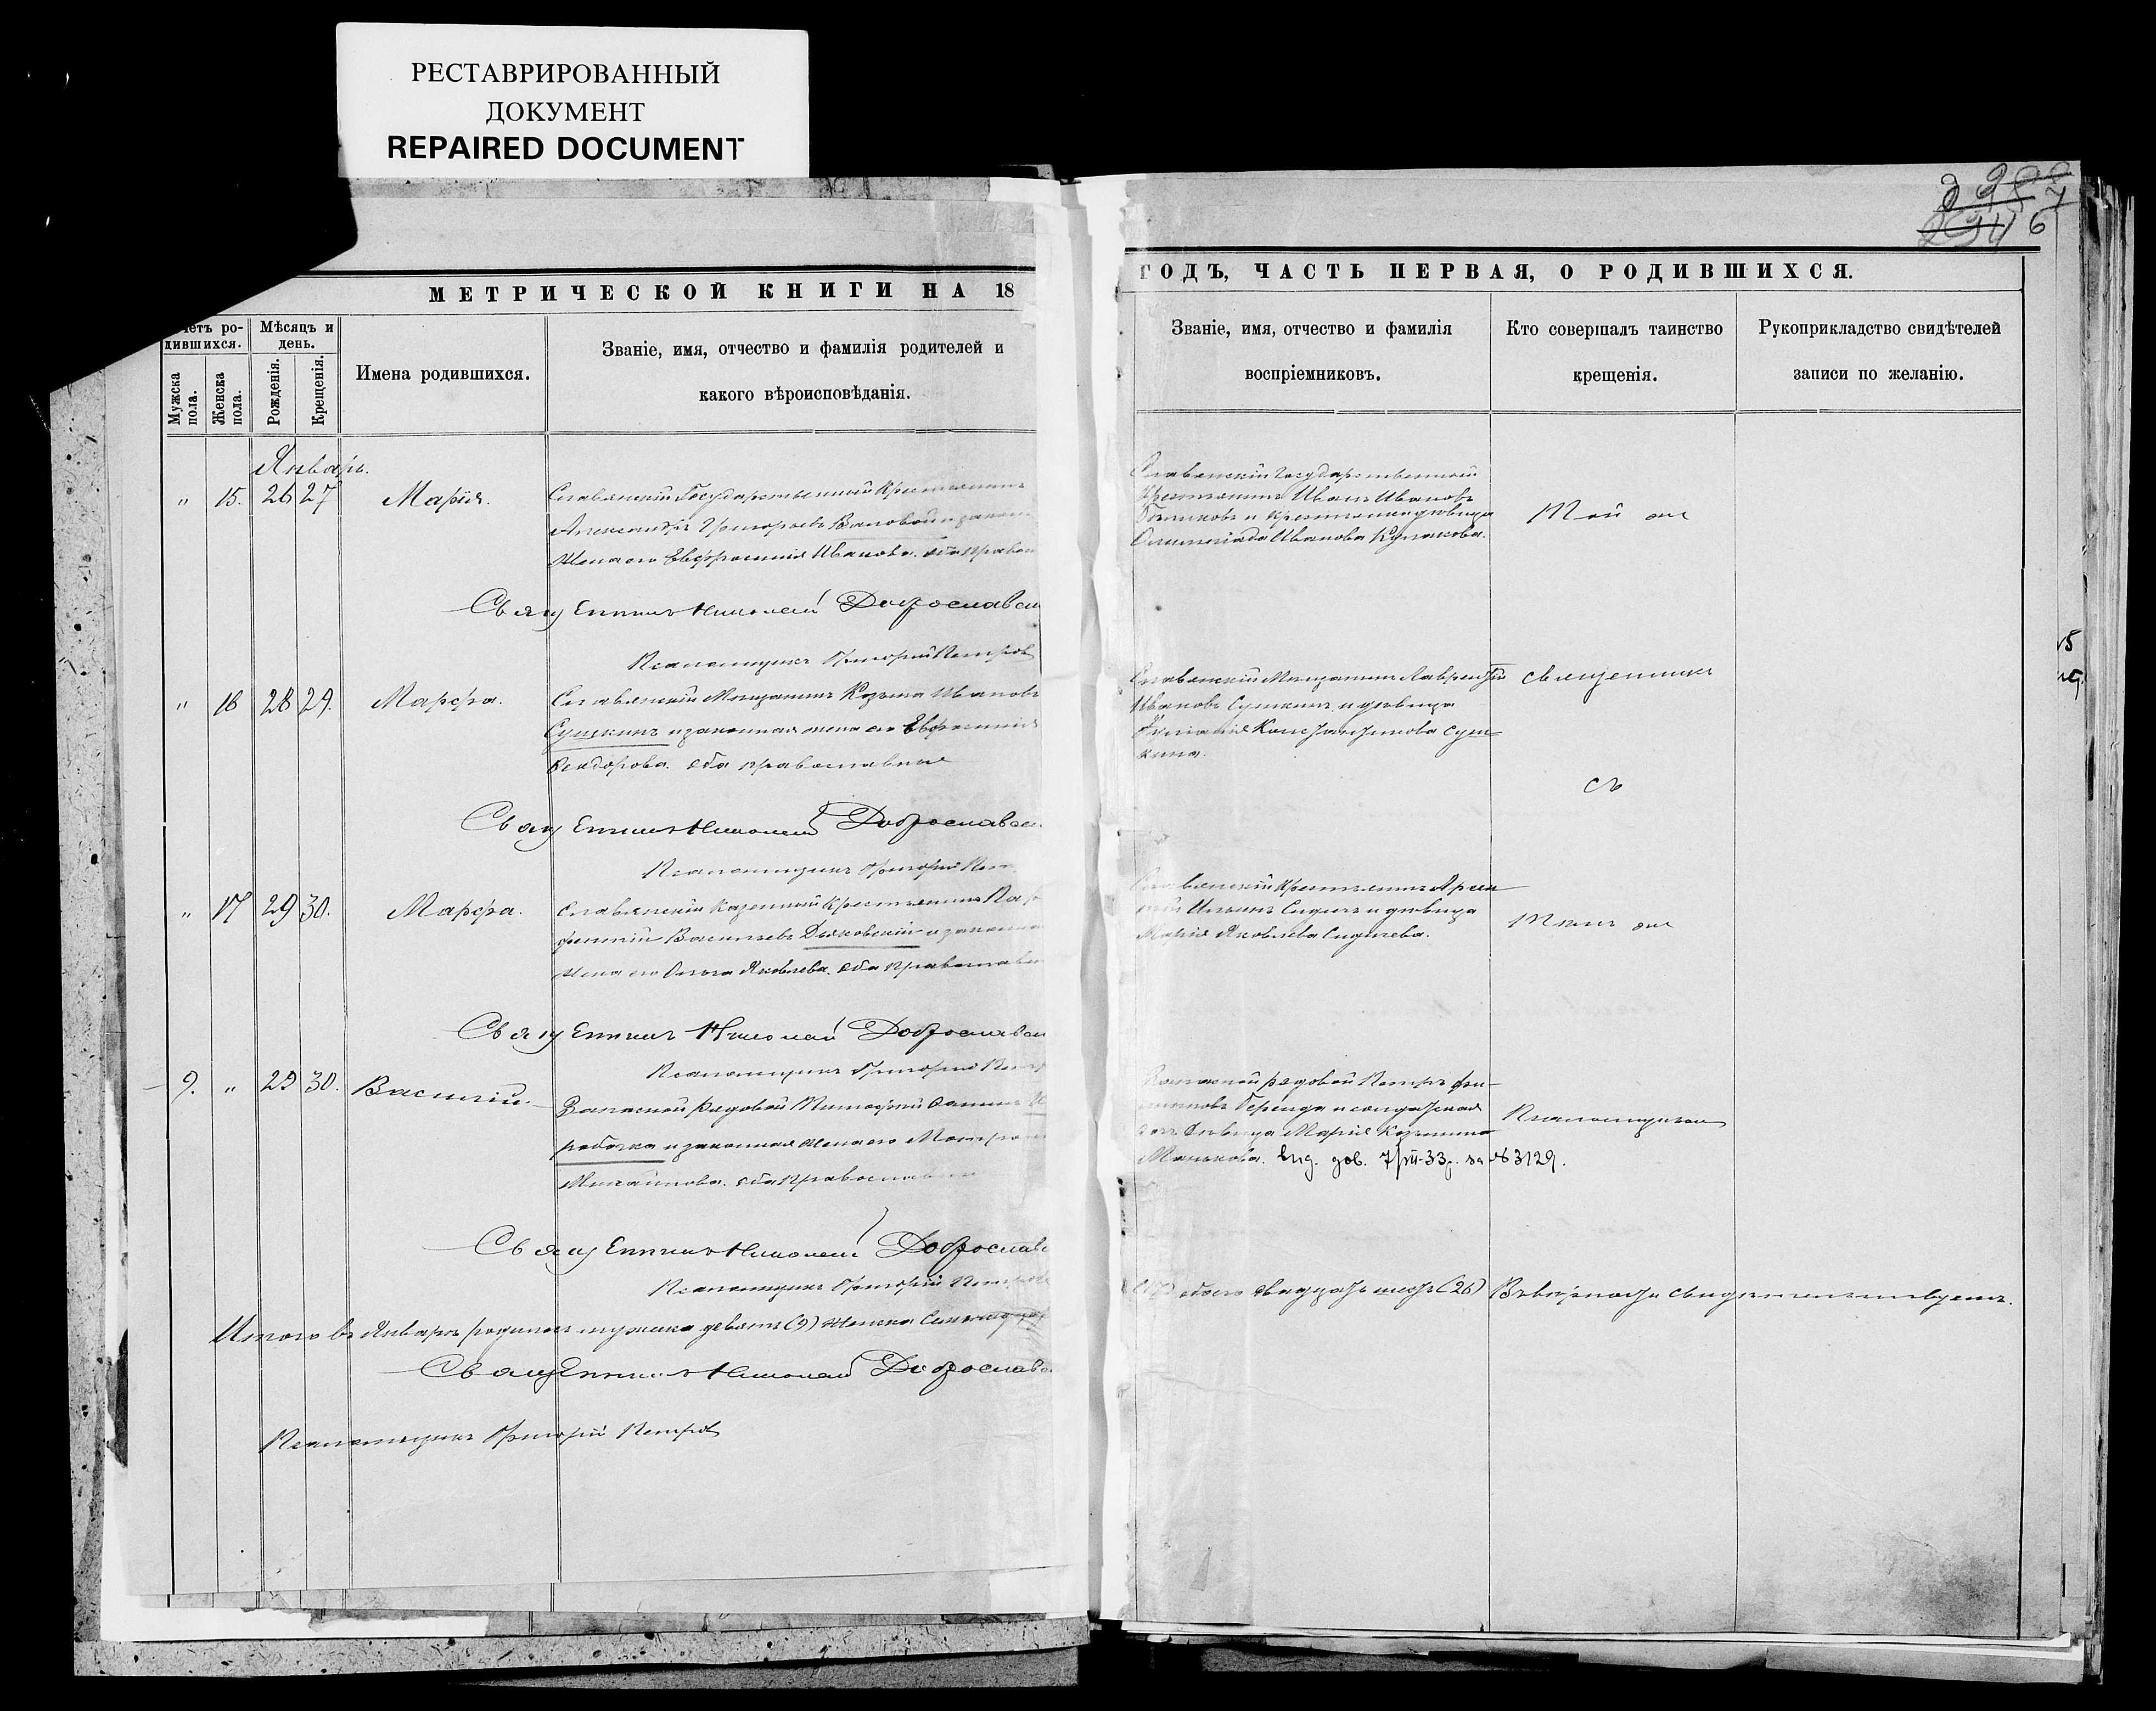 РЕСТАВРИРОВАННЫЙ
ДОКУМЕНТ
REPAIRED DOCUMENT
7
6
МЕТРИЧЕСКОЙ КНИГИ НА 18
ГОДЪ, ЧАСТЬ ПЕРВАЯ, О РОДИВШИХСЯ.
четъ ро-
дившихся.
Мужска пола.
Женска пола.
Мѣсяцъ и
день.
Рожденія.
Крещенія.
Имена родившихся.
Званіе, имя, отчество и фамилія родителей и
какого вѣроисповѣданія.
Званіе, имя, отчество и фамилія
воспріемниковъ.
Кто совершалъ таинство
крещенія.
Рукоприкладство свидѣтелей
записи по желанію.
Январь.
" 15. 26 27 Марія.
Славянскій Государственный Крестьянинъ
Александръ Григорьевъ и закон
Жена его Евфросинія Иванова. оба правос
Славянскій Государственный
Крестьянинъ Иванъ Ивановъ
и крестьянка дѣвица
Олимпіада Иванова Кулакова.
Священникъ Николай Доброславск
Псаломщикъ Григорій Петровъ
" 16 28 29. Марфа.
Славянскій Мѣщанинъ Козьма Ивановъ
Сушкинъ и законная жена его Евфросинія
Ѳеодорова. оба православные
Славянскій Мѣщанинъ Лаврентій
Ивановъ Сушкинъ и дѣвица
Константинова Суш-
кина.
Священникъ
съ
Священникъ Николай Доброславск
Псаломщикъ Григорій Пет
" 17 29 30. Марфа.
Славянскій казенный крестьянинъ Пар
феній Васильевъ Дьяковскій и законна
Жена его Ольга Яковлева. оба православн
Славянскій Крестьянинъ
и дѣвица
Марія Яковлева
Тѣмъ же
Священникъ Николай Доброславск
Псаломщикъ Григорій Петр
9. " 29 30. Василій.
Запасной рядовой Тимофей
и законная жена его Матрона
Михайлова. оба Православн
Запасной рядовой Петръ Фи-
и солдатская
дочь дѣвица Марія Козьмина
Манькова. Вид. дов. 7/VII-33р. за №3129.
Псаломщикомъ
Священникъ Николай Доброслав
Псаломщикъ Григорій Петровъ
Итого въ Январѣ родилось мужска девять (9) женска Семнадцать
(17) обоего двадцать шесть (26) Въ вѣрности свидѣтельствуемъ.
Священникъ Николай Доброславс
Псаломщикъ Григорій Петровъ